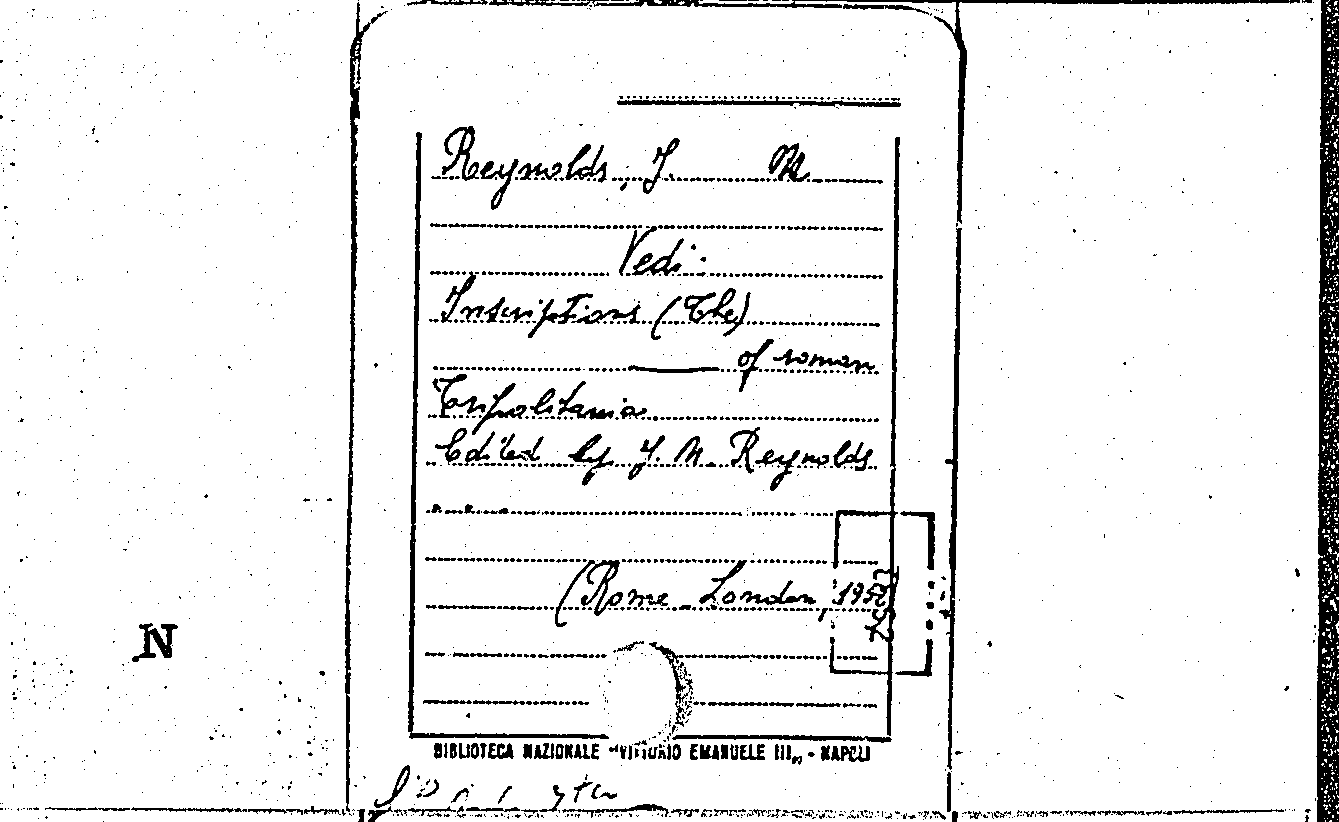 Reynolds, J. M
Vedi:
Inscriptions (The)
of roman
Tripolitania
Edited by J. M. Reynolds
....
(Rome London,
N
BIBLIOTECA NAZIONALE "VITTORIO EMANUELE III„ - NAPOLI